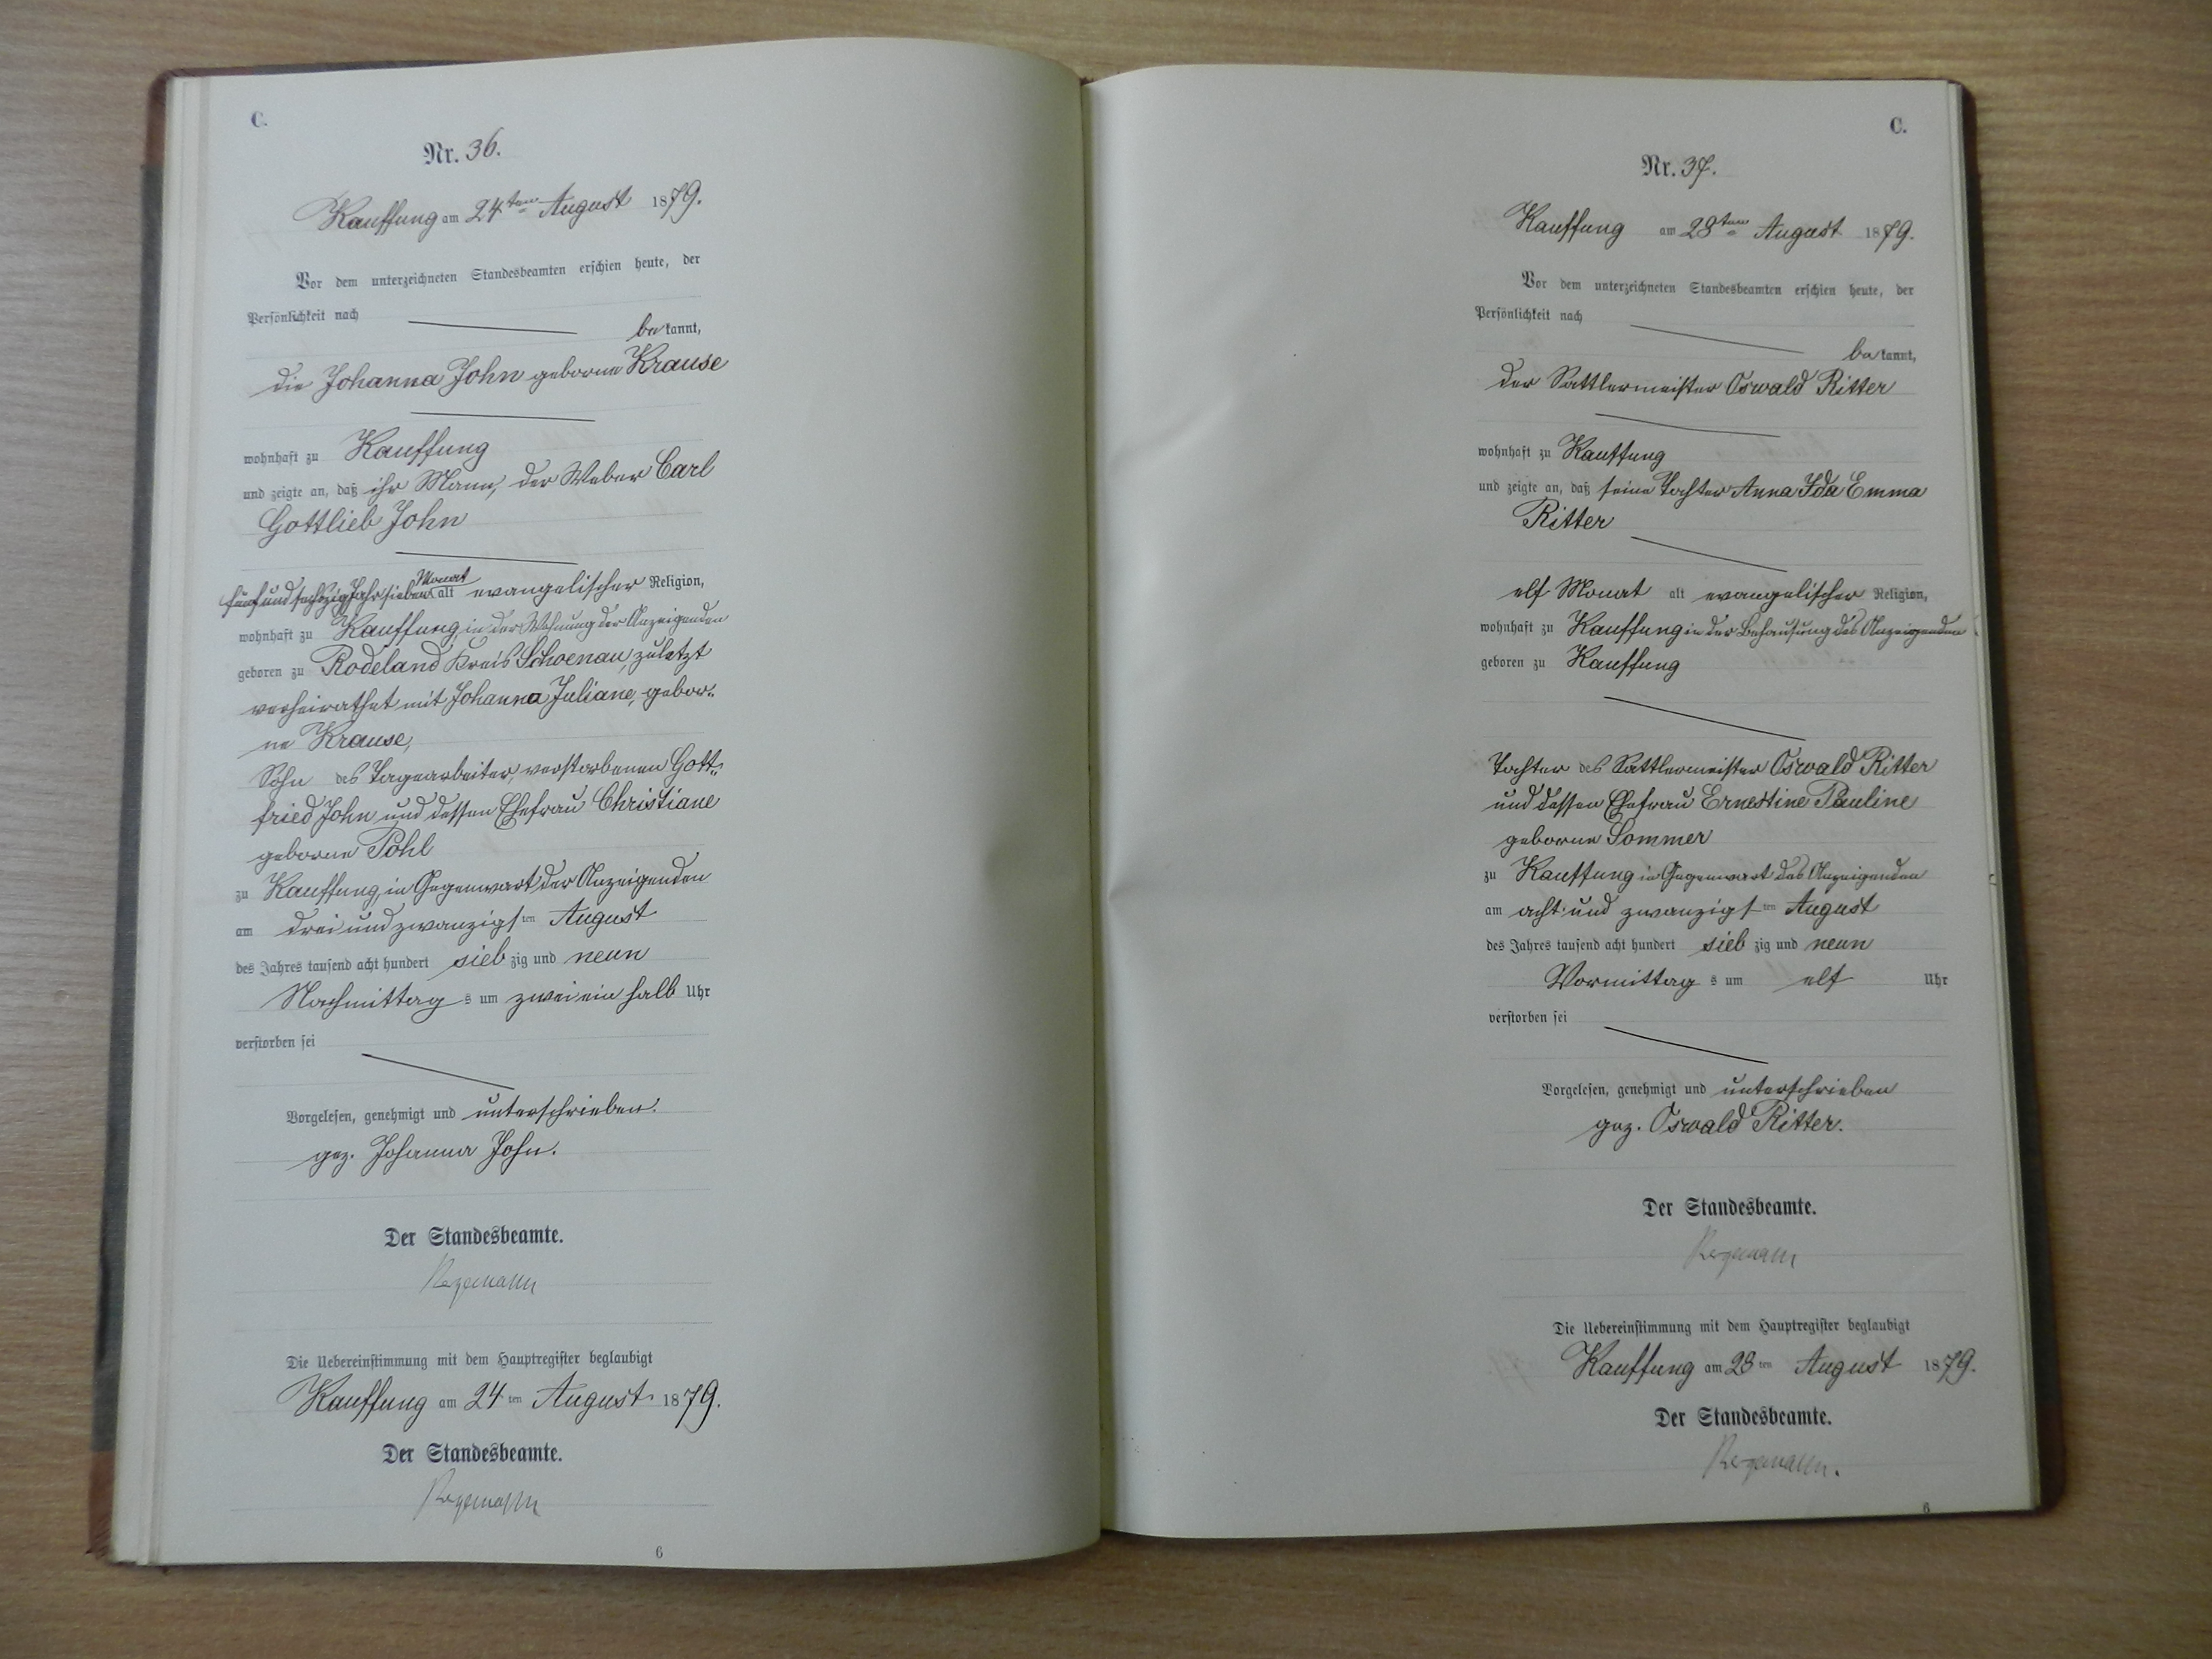 C.
Nr. 36.
Kauffung am 24ten August 1879.
Vor dem unterzeichneten Standesbeamten erschien heute, der
Persönlichkeit nach
bekannt,
die Johanna John geborne Krause
wohnhaft zu Kauffung
und zeigte an, daß ihr Mann, der Weber Carl
Gottlieb John
Monat
fünf und sechszig Jahr sieben alt evangelischer Religion,
wohnhaft zu Kauffung, in der Wohnung der Anzeigenden
geboren zu Rodeland Kreis Schoenau, zuletzt
verheirathet mit Johanna Juliane, gebor-
ne Krause,
Sohn des Tagearbeiter, verstorbenen Gott-
fried John und dessen Ehefrau Christiane
geborne Pohl
zu Kauffung, in Gegenwart der Anzeigenden
am drei und zwanzigsten August
des Jahres tausend acht hundert siebzig und neun
Nachmittags um zwei ein halb Uhr
verstorben sei
Vorgelesen, genehmigt und unterschrieben.
gez. Johanna John.
Der Standesbeamte.
Die Uebereinstimmung mit dem Hauptregister beglaubigt
Kauffung am 24ten August 1879.
Der Standesbeamte.
6
C.
Nr. 37.
Kauffung am 28ten August 1879.
Vor dem unterzeichneten Standesbeamten erschien heute, der
Persönlichkeit nach
bekannt,
der Sattlermeister Oswald Ritter
wohnhaft zu Kauffung
und zeigte an, daß seine Tochter Anna Ida Emma
Ritter
elf Monat alt evangelischer Religion,
wohnhaft zu Kauffung in der Behausung des Anzeigenden
geboren zu Kauffung
Tochter des Sattlermeister Oswald Ritter
und dessen Ehefrau Ernestine Pauline
geborne Sommer
zu Kauffung in Gegenwart des Anzeigenden
am acht und zwanzigsten August
des Jahres tausend acht hundert siebzig und neun
Vormittags um elf Uhr
verstorben sei
Vorgelesen, genehmigt und unterschrieben
gez. Oswald Ritter.
Der Standesbeamte.
Die Uebereinstimmung mit dem Hauptregister beglaubigt
Kauffung am 28ten August 1879.
Der Standesbeamte.
6